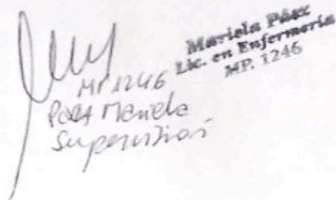 Mariela Páez
Lic. en Enfermería
MP. 1246
MP 1246
Páez Mariela
Supervisión